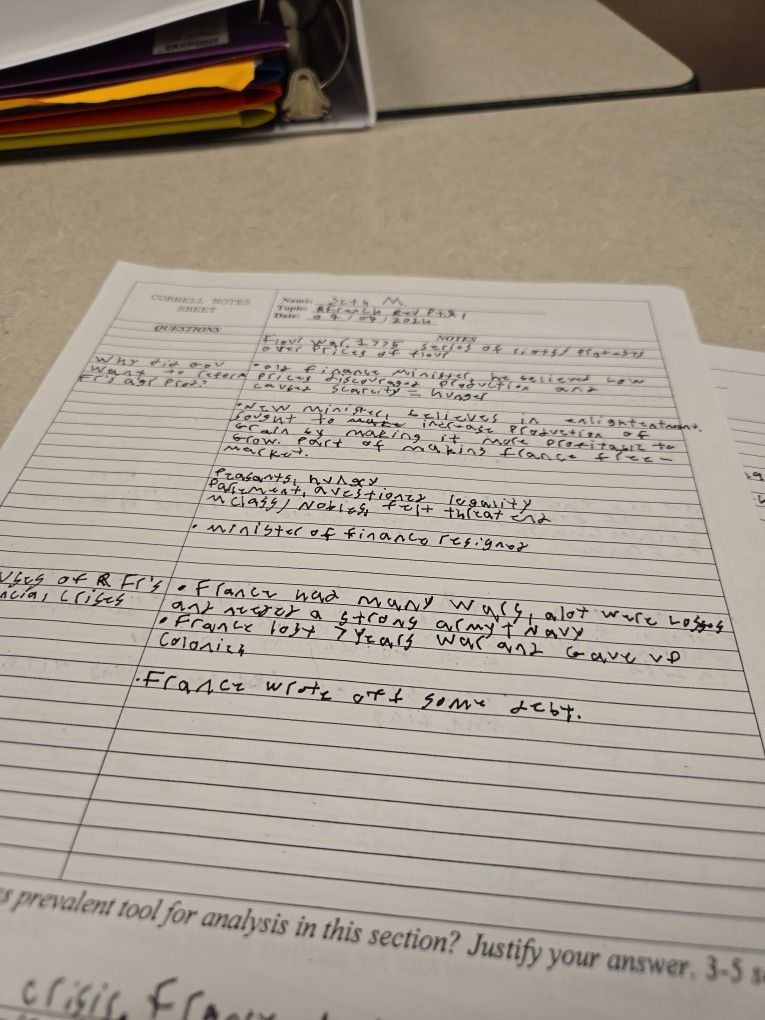 CORNELL NOTES
SHEET
Name: Seth M.
Topic: French Rev Pt.1
Date: 09/09/2024
QUESTIONS
NOTES
Flour War, 1775 series of riots/protests
over prices of flour
Why did gov
want to reform
Fr's agr prod?
• old finance minister, he believed low
prices discouraged production and
caused scarcity = hunger
• New minister, believes in enlightenment.
Sought to increase production of
Grain by making it more profitable to
Grow. Part of making france free-
market.
Peasants, hungry
Parlement, questioned legality
Nobles, felt threatened
• minister of finance resigned
of Fr's
crises
• France had many wars, alot were Losses
and needed a strong army + Navy
• France lost 7 Years War and Gave up
Colonies
• France wrote off some debt.
prevalent tool for analysis in this section? Justify your answer. 3-5
crisis,